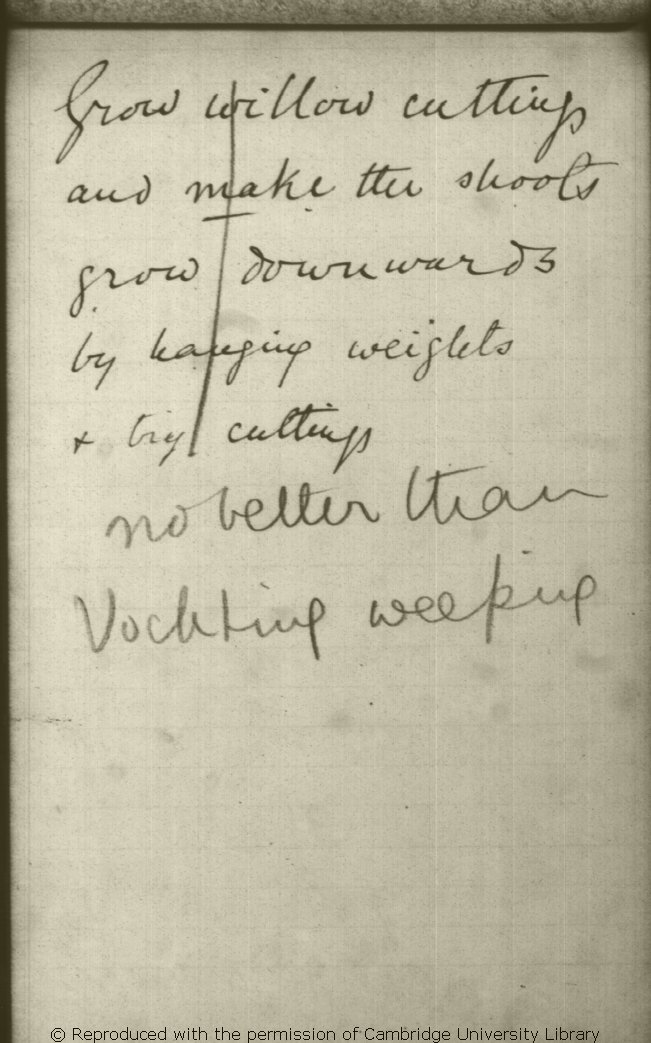 Grow willow cuttings
and make the shoots
grow downwards
by hanging weights
& try cuttings
no better than
Vochting weeping
© Reproduced with the permission of Cambridge University Library